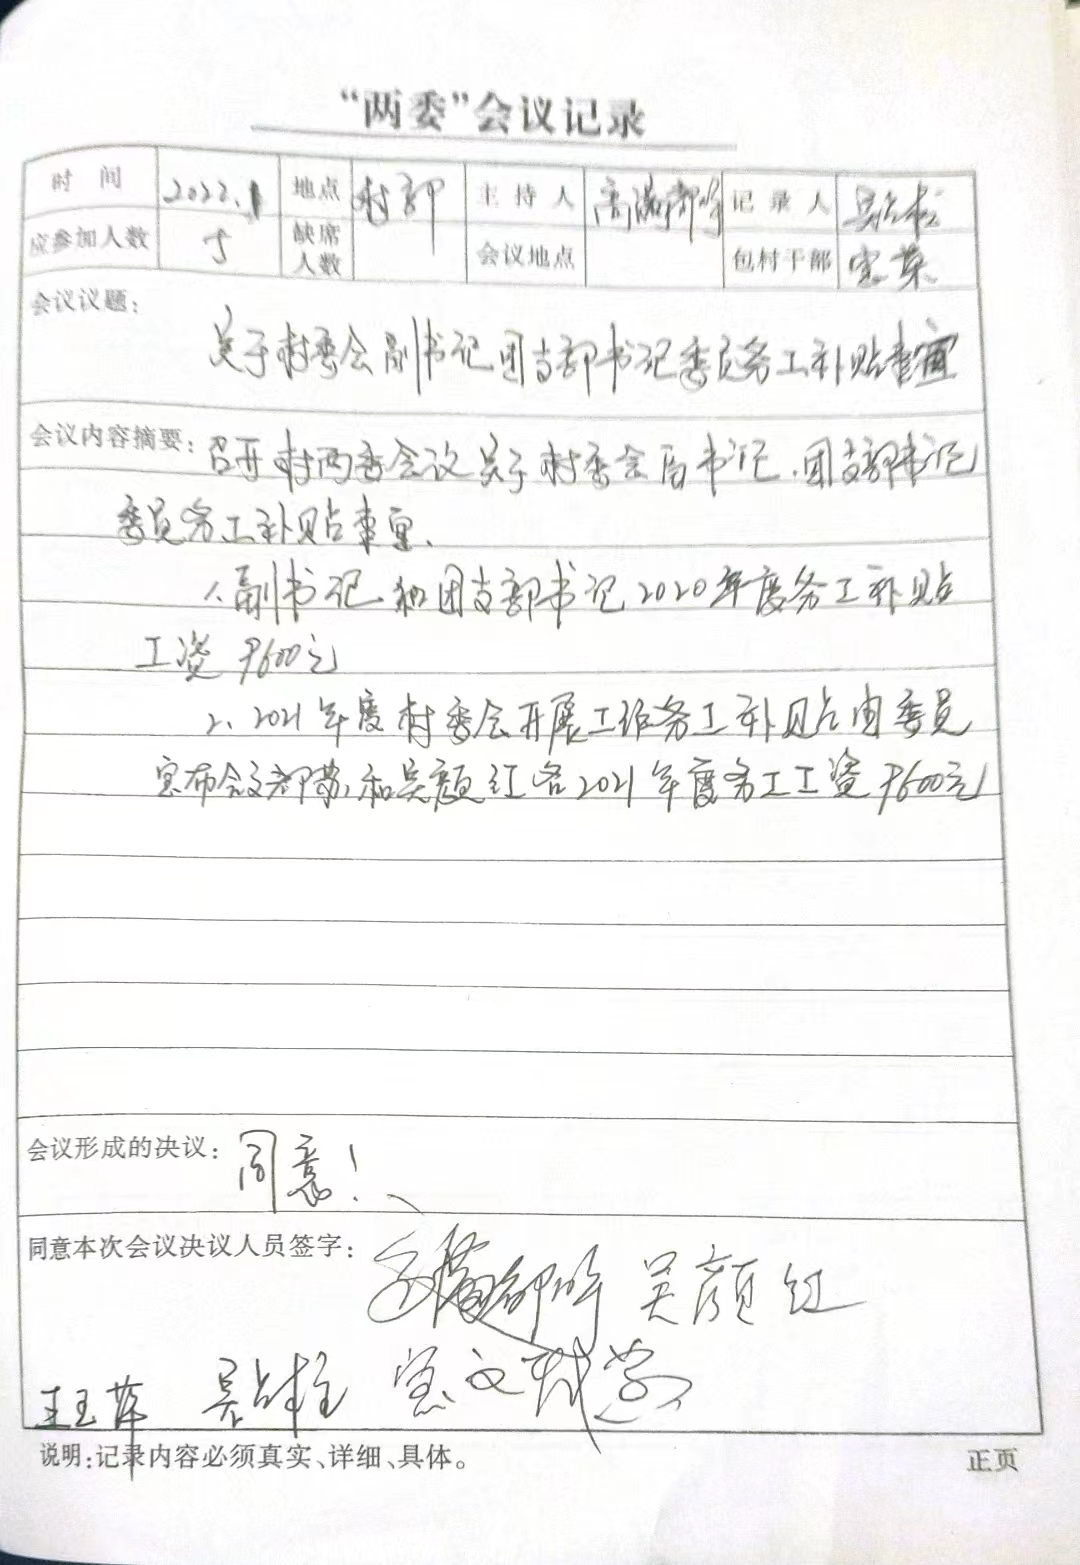 “两委”会议记录
时间 2022.1 地点 村部 主持人 记录人 吴占柱
应参加人数 5 缺席人数 会议地点 包村干部 宝荣
会议议题:
关于村委会副书记团支部书记委员务工补贴事宜
会议内容摘要: 召开村两委会议关于村委会副书记.团支部书记
委员务工补贴事宜.
1.副书记和团支部书记2020年度务工补贴
工资9600元
2、2021年度村委会开展工作务工补贴由委员
和吴颜红各2021年度务工工资9600元
会议形成的决议: 同意!
同意本次会议决议人员签字: 吴颜红
王玉萍 吴占柱
说明:记录内容必须真实、详细、具体。 正页